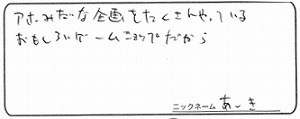 アホみたいな企画をたくさんやっている
おもしろいゲームショップだから
ニックネーム あーき